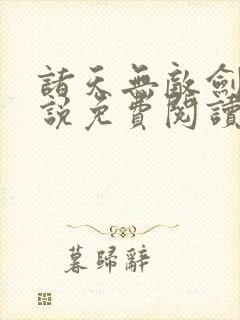 諸天無敵劍
說免費閱讀
暮歸辭